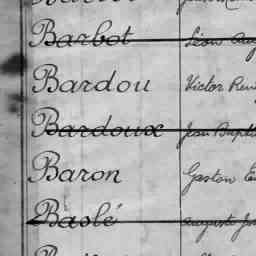 Barbot Léon
Bardou Victor René
Bardoux Jean Baptiste
Baron Gaston
Baslé Auguste